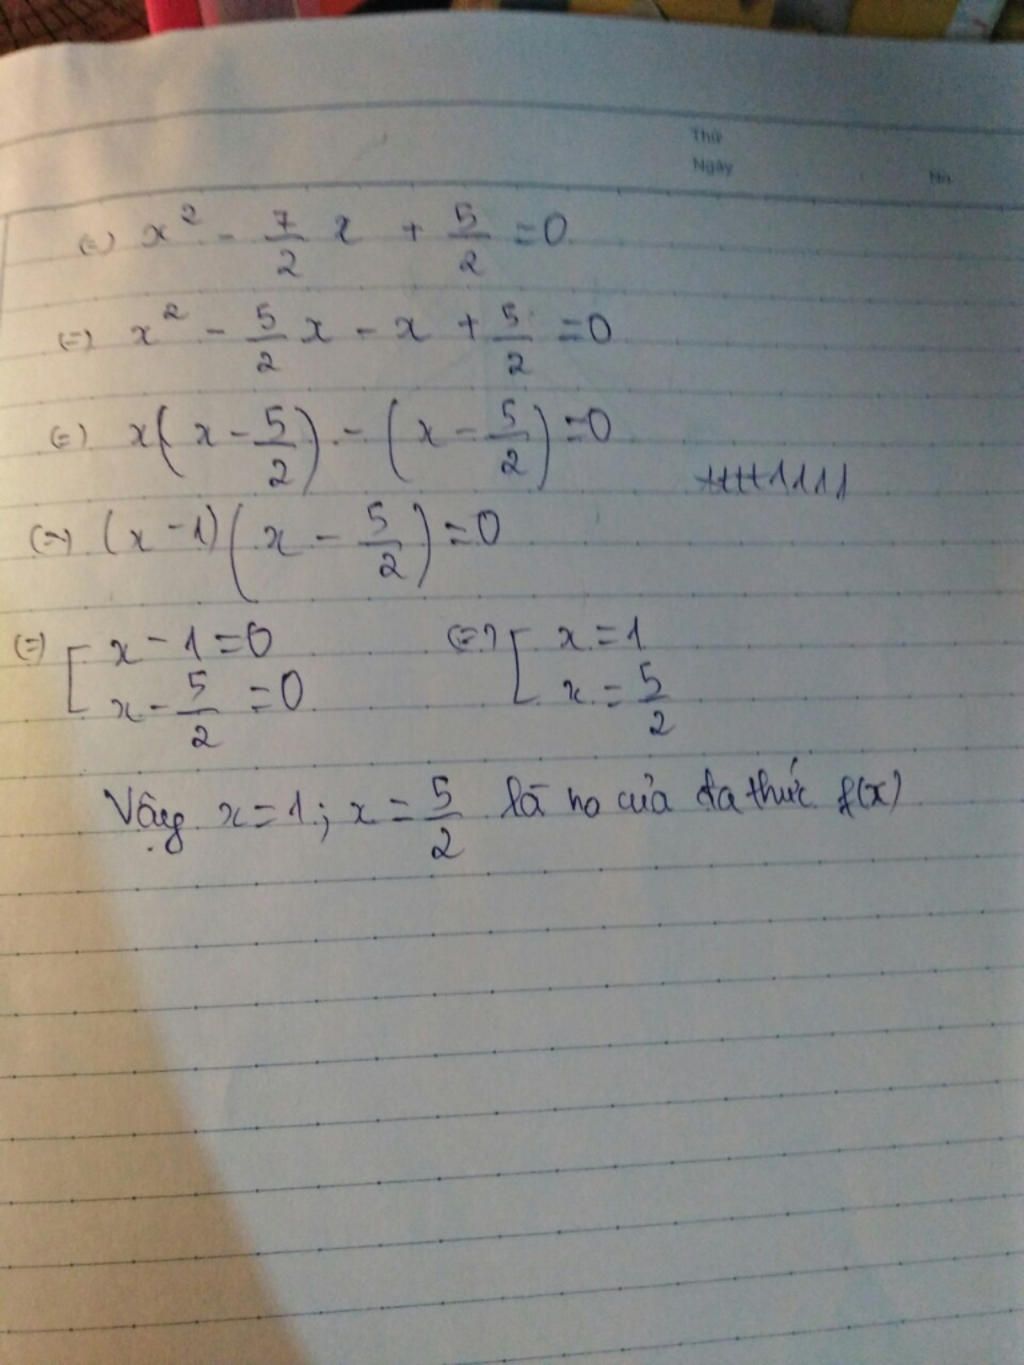 Thứ
Ngày
No
(=) x² - 7/2 x + 5/2 = 0
(=) x² - 5/2 x - x + 5/2 = 0
(=) x(x - 5/2) - (x - 5/2) = 0
(=) (x - 1)(x - 5/2) = 0
(=) [ x - 1 = 0 (=) [ x = 1
x - 5/2 = 0 x = 5/2
Vậy x = 1; x = 5/2 là no của đa thức f(x)